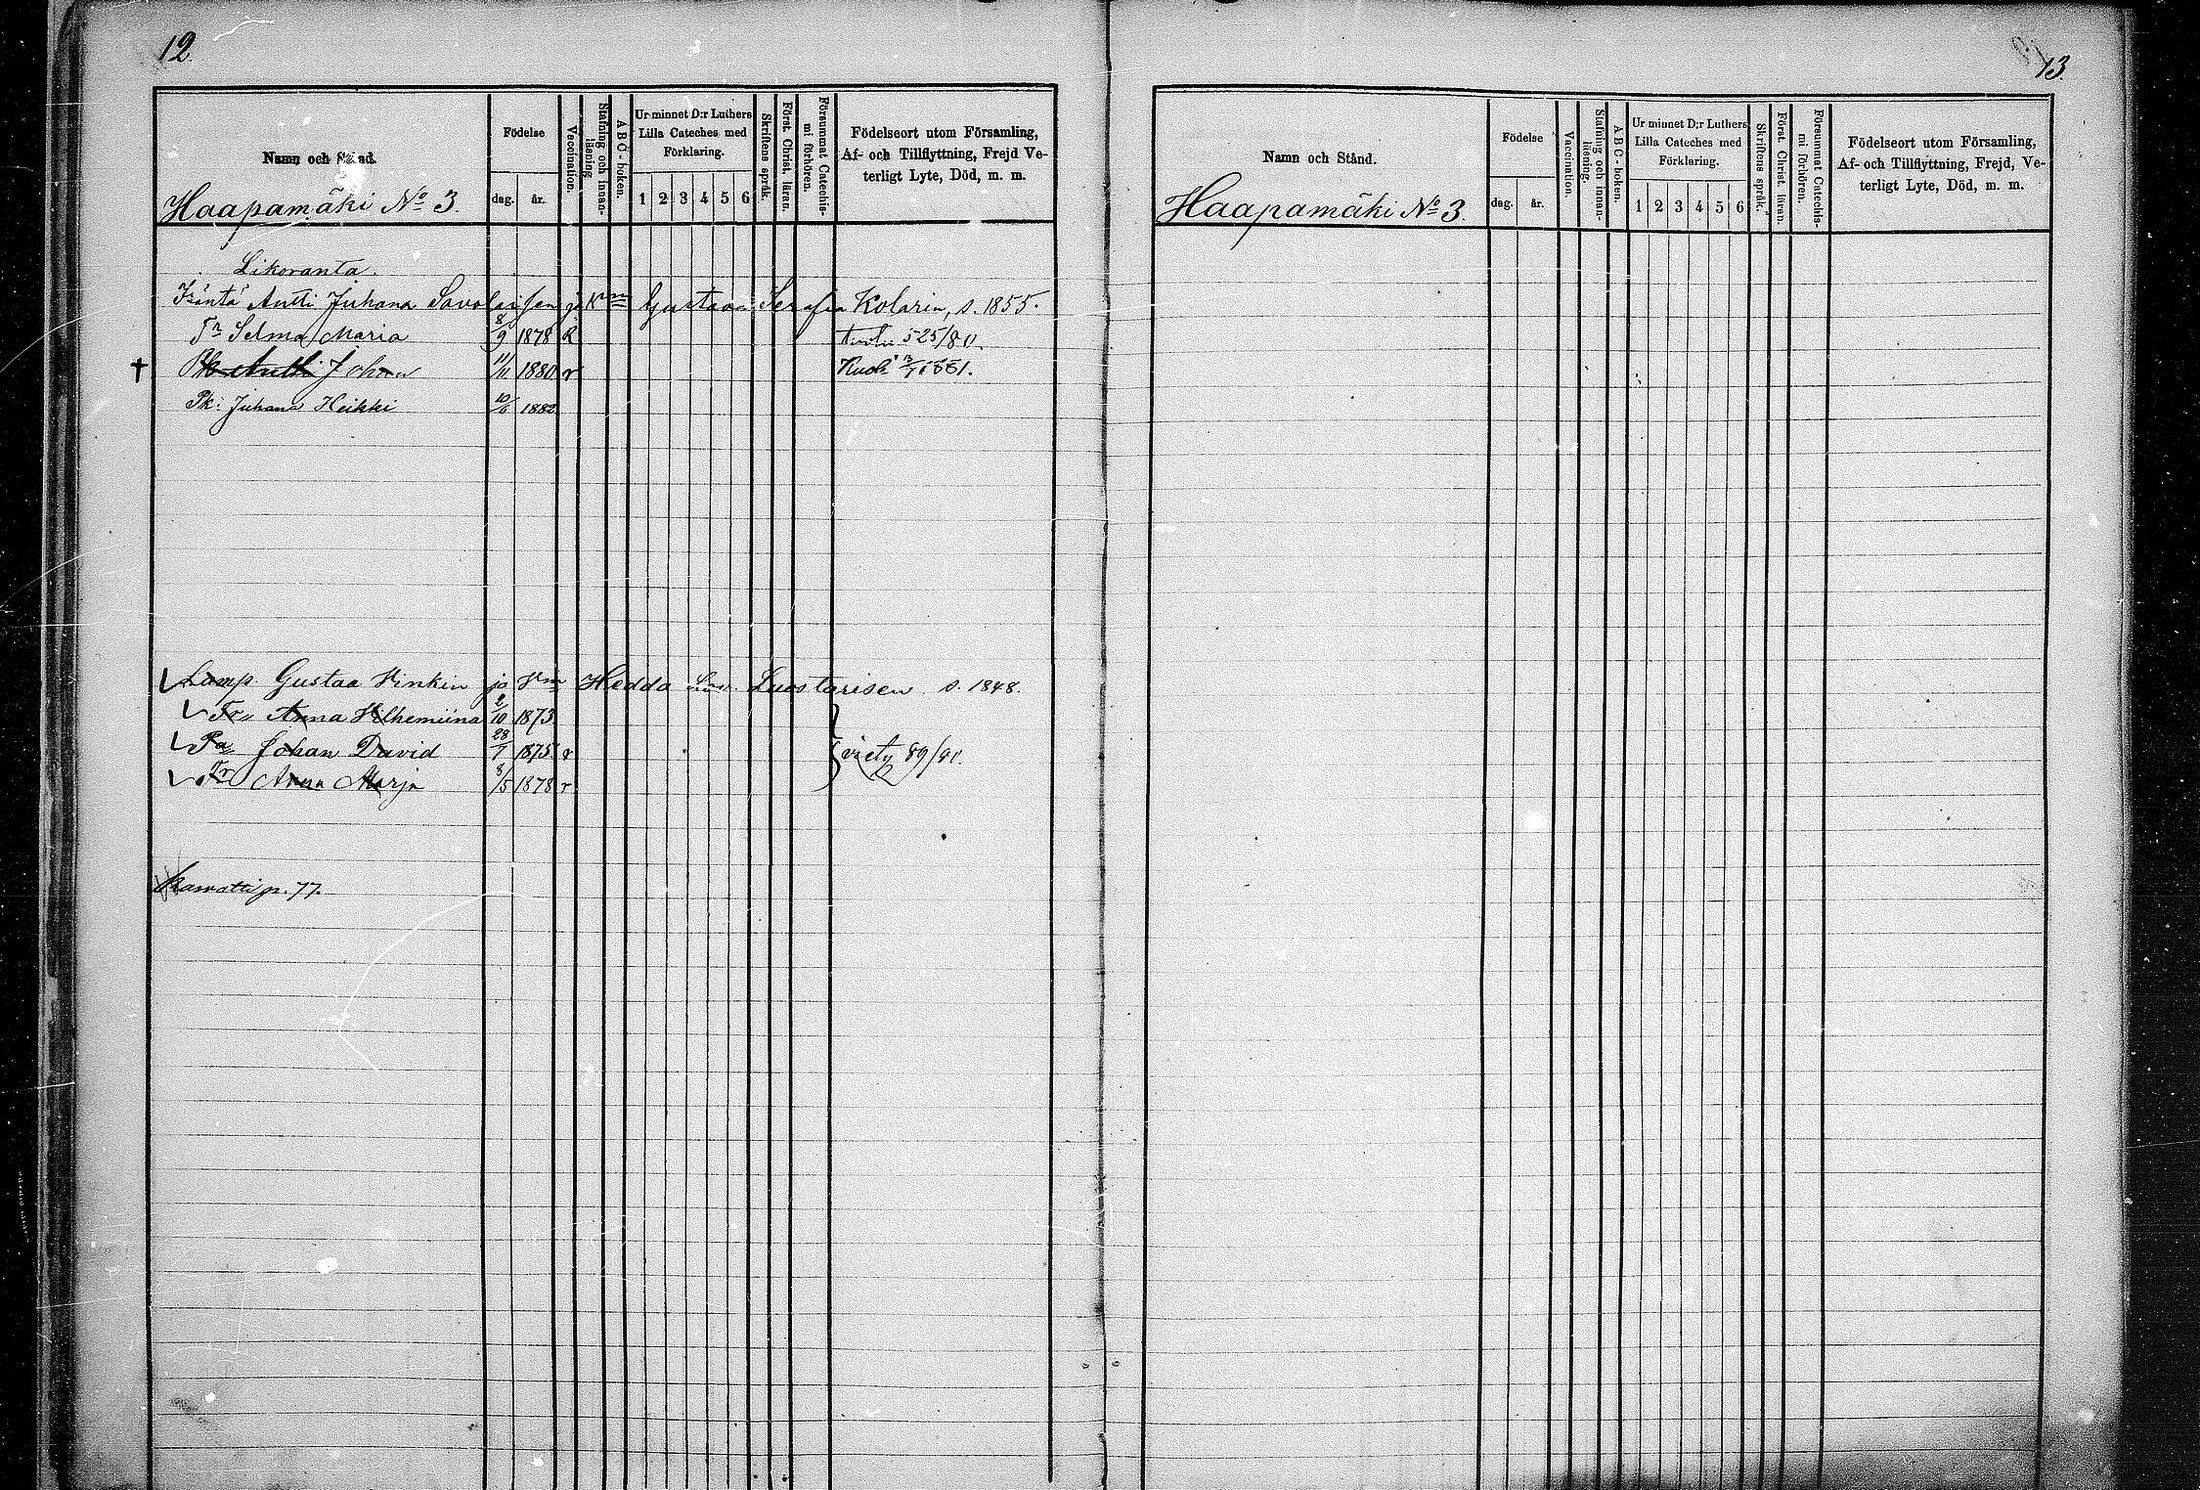 12.
Namn och Stånd.
Födelse
dag.
år.
Vaccination.
Stafning och innan-läsning
A B C-boken.
Ur minnet D:r Luthers
Lilla Cateches med
Förklaring.
1 2 3 4 5 6
Skriftens språk.
Först. Christ. läran.
Försummat Catechis-mi förhören.
Födelseort utom Församling,
Af- och Tillflyttning, Frejd Ve-
terligt Lyte, Död, m. m.
Haapamäki No 3.
Likoranta.
Isäntä Antti Juhana Savolaisen ja Km Gustaava Serafia Kolarin, s. 1855.
Tr Selma Maria 8/9 1878 R 525/80.
† Antti Johan 11/11 1880 r Kuoli 1881.
Pk: Juhana Heikki 10/6 1882
Lamp. Gustaa Hinkin ja Vm Hedda Luostarisen s. 1848.
Tr Anna Wilhemiina 2/10 1873
Pa Johan David 28/7 1875. r viety 89/91.
Tr Anna Marja 8/5 1878 r
Kawatti p. 77.
13.
Namn och Stånd.
Födelse
dag.
år.
Vaccination.
Stafning och innan-läsning.
A B C-boken.
Ur minnet D:r Luthers
Lilla Cateches med
Förklaring.
1 2 3 4 5 6
Skriftens språk.
Först. Christ. läran.
Försummat Catechis-mi förhören.
Födelseort utom Församling,
Af- och Tillflyttning, Frejd, Ve-
terligt Lyte, Död, m. m.
Haapamäki No 3.